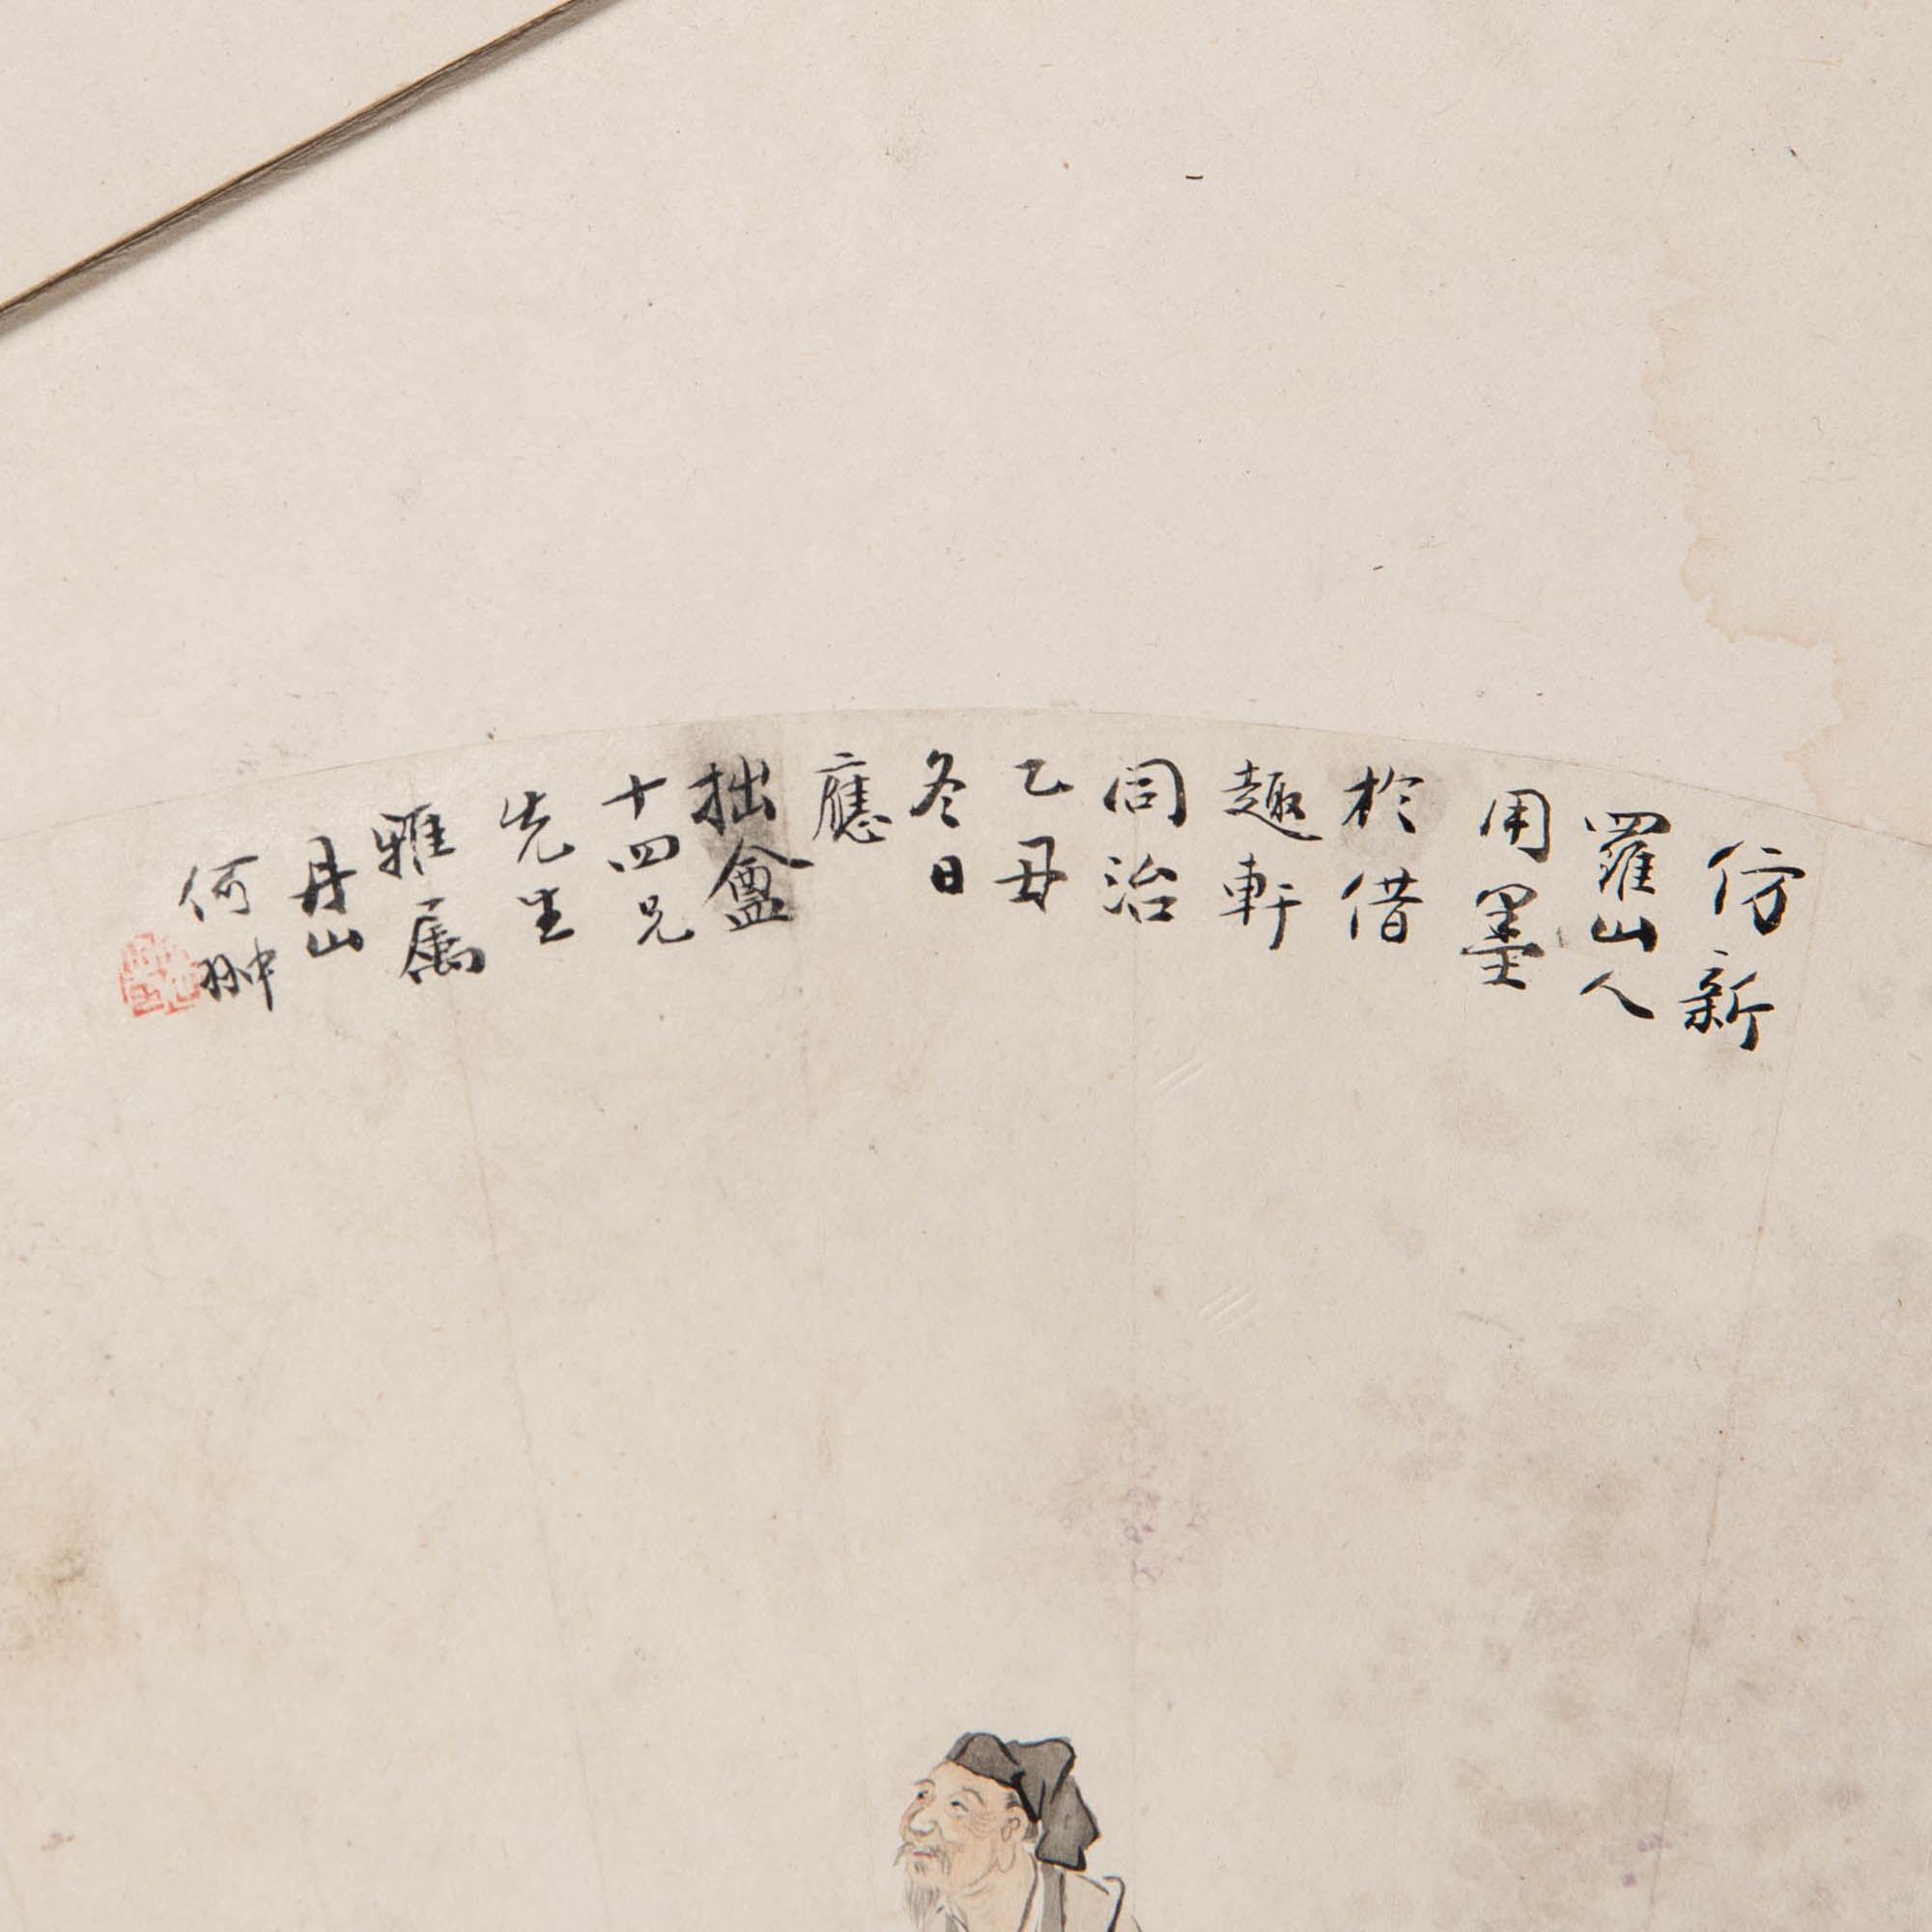 仿新
羅山人
用墨
於借
趣軒
同治
乙丑
冬日
應
拙盦
十四兄
先生
雅属
丹山
何翀